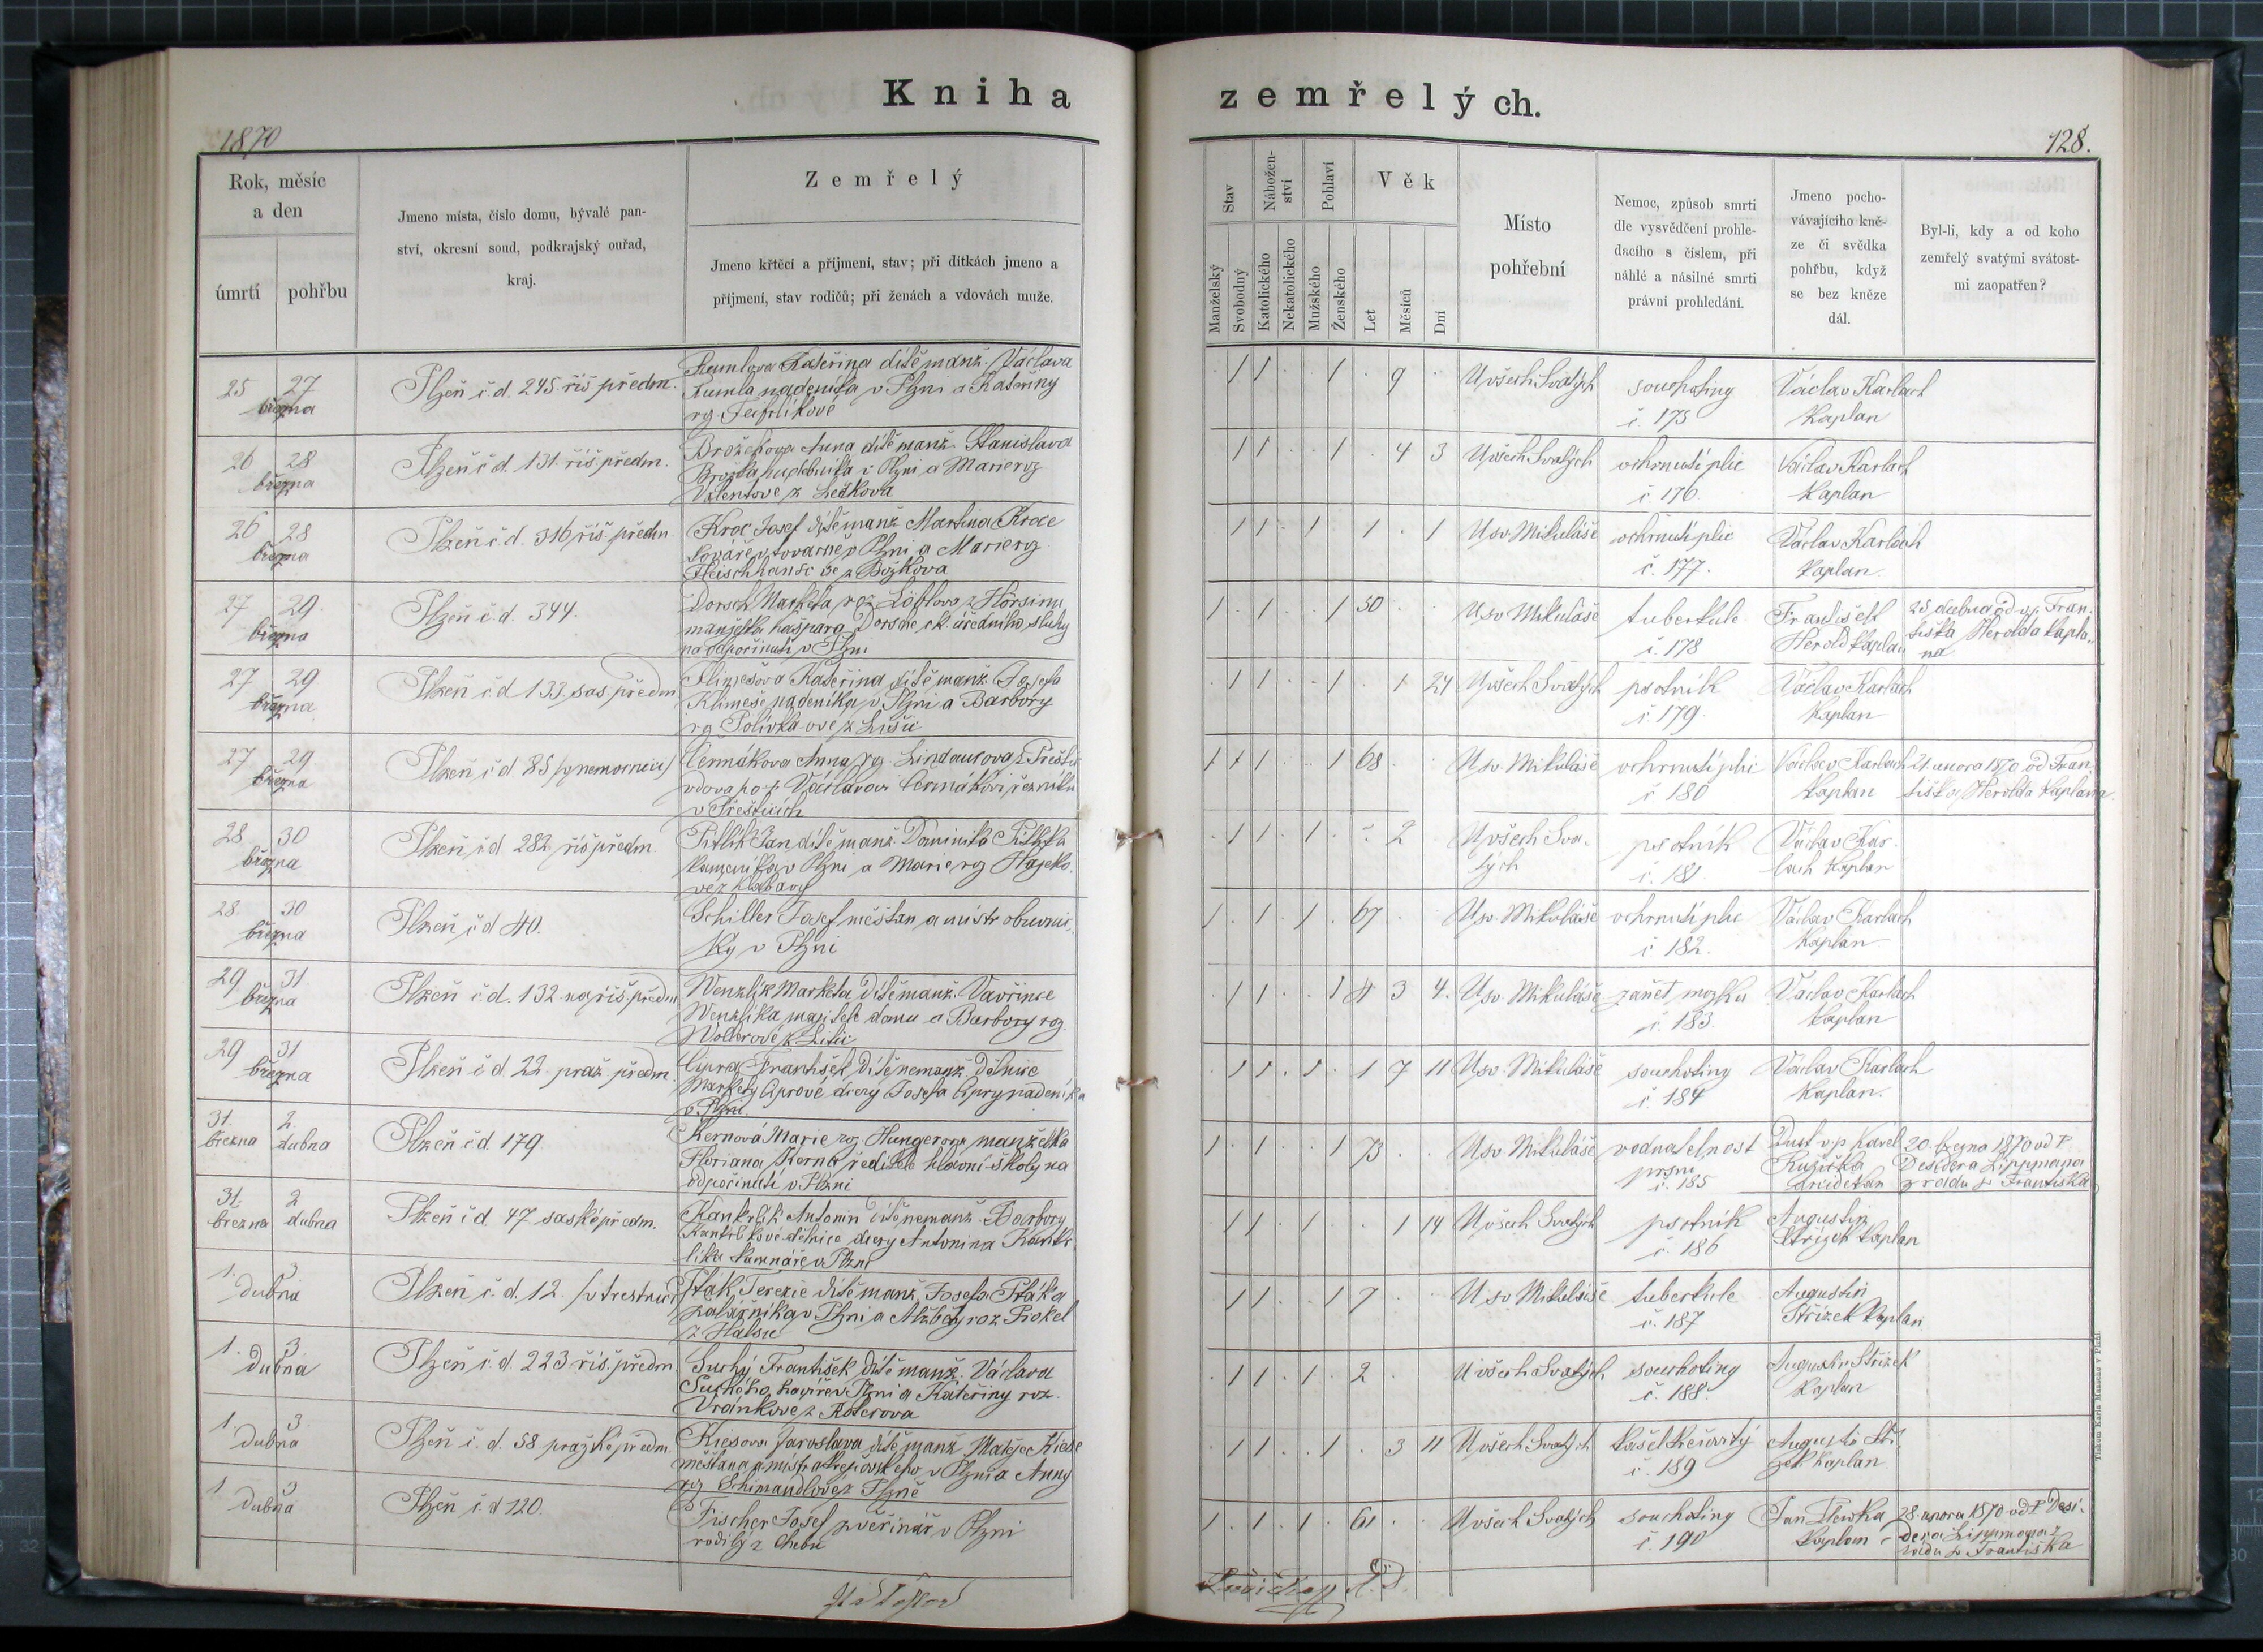 Kniha
zemřelých.
1870
128.
Rok, měsíc
a den
úmrtí
pohřbu
Jmeno místa, číslo domu, bývalé pan-
ství, okresní soud, podkrajský ouřad,
kraj.
Zemřelý
Jmeno křtěcí a příjmení, stav; při dítkách jmeno a
příjmení, stav rodičů; při ženách a vdovách muže.
Stav
Manželský
Svobodný
Nábožen-
ství
Katolického
Nekatolického
Pohlaví
Mužského
Ženského
Věk
Let
Měsíců
Dní
Místo
pohřební
Nemoc, způsob smrti
dle vysvědčení prohle-
dacího s číslem, při
náhlé a násilné smrti
právní prohledání.
Jmeno pocho-
vávajícího kně-
ze či svědka
pohřbu, když
se bez kněze
dál.
Byl-li, kdy a od koho
zemřelý svatými svátost-
mi zaopatřen?
25 27
března
Plzeň č.d. 245 říš. předm.
Kateřina dítě manž. Václava
nadeníka v Plzni a Kateřiny
9
U všech Svatých
souchotiny
č. 175
Václav Karlach
Kaplan
26 28
března
Plzeň č d. 131. říš. předm.
Anna dítě manž. Stanislava
v Plzni a Marie roz.
4 3
U všech Svatých
ochrnutí plic
č. 176.
Václav Karlach
Kaplan
26 28
března
Plzeň č. d. 316 říš. předm
Kroc Josef dítě manž Martina Kroce
kováře v továrně v Plzni a Marie roz.
z Božkova
1 . 1
U sv. Mikuláše
ochrnutí plic
č. 177.
Václav Karlach
Kaplan.
27 29.
března
Plzeň č. d. 344.
Dorsch Marketa roz.
manželka Kašpara c.k. úředního sluhy
na odpočinutí v Plzni
50
U sv Mikuláše
tuberkule
č. 178
František
Herold Kaplan
25 od v.p. Fran-
tiška Herolda Kapla-
na
27 29
března
Plzeň č d 133. sas. předm
Klimešova Kateřina dítě manž. Josefa
Klimeše nadeníka v Plzni a Barbory
1 24
U všech Svatých
psotník
č. 179.
Václav Karlach
Kaplan
27 29
března
Plzeň č d 85
Čermákova Anna roz. Lindaurova z Přeštic
vdova po Václavovi Čermákovi řezníku
v Přešticích
68
U sv. Mikuláše
ochrnutí plic
č 180
Václav Karlach
Kaplan
21. unora 1870 od Fran
tiška Herolda Kaplana
28 30
března
Plzeň č d 282 říš předm.
Pitlik Jan dítě manž. Dominika Pitlika
kameníka v Plzni a Marie roz Hajeko-
ve z Klabavy
2
U všech Sva-
tých
psotník
č. 181
Václav Kar-
lach Kaplan
28. 30
března
Plzeň č d 40.
Schiller Josef měšťan a mistr obuvnic-
ký v Plzni
67
U sv. Mikuláše
ochrnutí plic
č 182.
Václav Karlach
Kaplan
29 31.
března
Plzeň č.d. 132 na říš. předm
Wenzlik Marketa dítě manž. Vavřince
Wenzlika majitele domu a Barbory roz.
z Litic
4 3 4.
U sv. Mikuláše
zanět mozku
č. 183.
Václav Karlach
Kaplan
29 31
března
Plzeň č d. 22 praž. předm.
Cipra František dítě nemanž. Dělnice
Markety Ciprové dcery Josefa Cipry nadeníka
v Plzni.
1 7 11
U sv. Mikuláše
souchotiny
č. 184
Václav Karlach
Kaplan.
31. 2.
března dubna
Plzeň č d 179.
Kernová Marie roz. Hungerova manželka
Floriana Kerna ředitele hlavní školy na
odpočinutí v Plzni
73
U sv Mikuláše
vodnatelnost
prsní
č. 185
Karel
Ružička
20. března 1870 od P.
Desidera Lippmana
z řádu s. Františka
31. 2
března dubna
Plzeň č d. 47 saské předm.
Kantrlik Antonin dítě nemanž. Barbory
Kantrlikové dělnice dcery Antonina Kantr-
lika v Plzni
1 14
U všech Svatých
psotník
č. 186
Augustin
Střížek Kaplan
1. 3
dubna
Plzeň č. d. 12.
Pták Terezie dítě manž. Josefa Ptáka
žalářníka v Plzni a Alžběty roz.
7
U sv Mikuláše
tuberkule
č. 187
Augustin
Střížek Kaplan
1. 3.
dubna
Plzeň č. d. 223 říš. předm
Suchý František dítě manž. Václava
Suchého v Plzni a Kateřiny roz.
Vrankove z
2
U všech Svatých
souchotiny
č. 188.
Augustin Střížek
Kaplan
1. 3.
dubna
Plzeň č. d. 58 pražské předm.
Kiesova Jaroslava dítě manž Matěje Kiese
měšťana a mistra krejčovského v Plzni a Anny
roz Schimandlove z Plzně
3 11
U všech Svatých
kašel křečovitý
č. 189
Augustin Stří-
žek Kaplan.
1 3
dubna
Plzeň č d 120.
Fischer Josef v Plzni
rodilý z Chebu
61
U všech Svatých
souchotiny
č. 190
Jan
Kaplan
28. unora 1870 od P. Desi-
dera Lippmana z
řádu s. Františka
Tiskem Karla Maasche v Plzni.